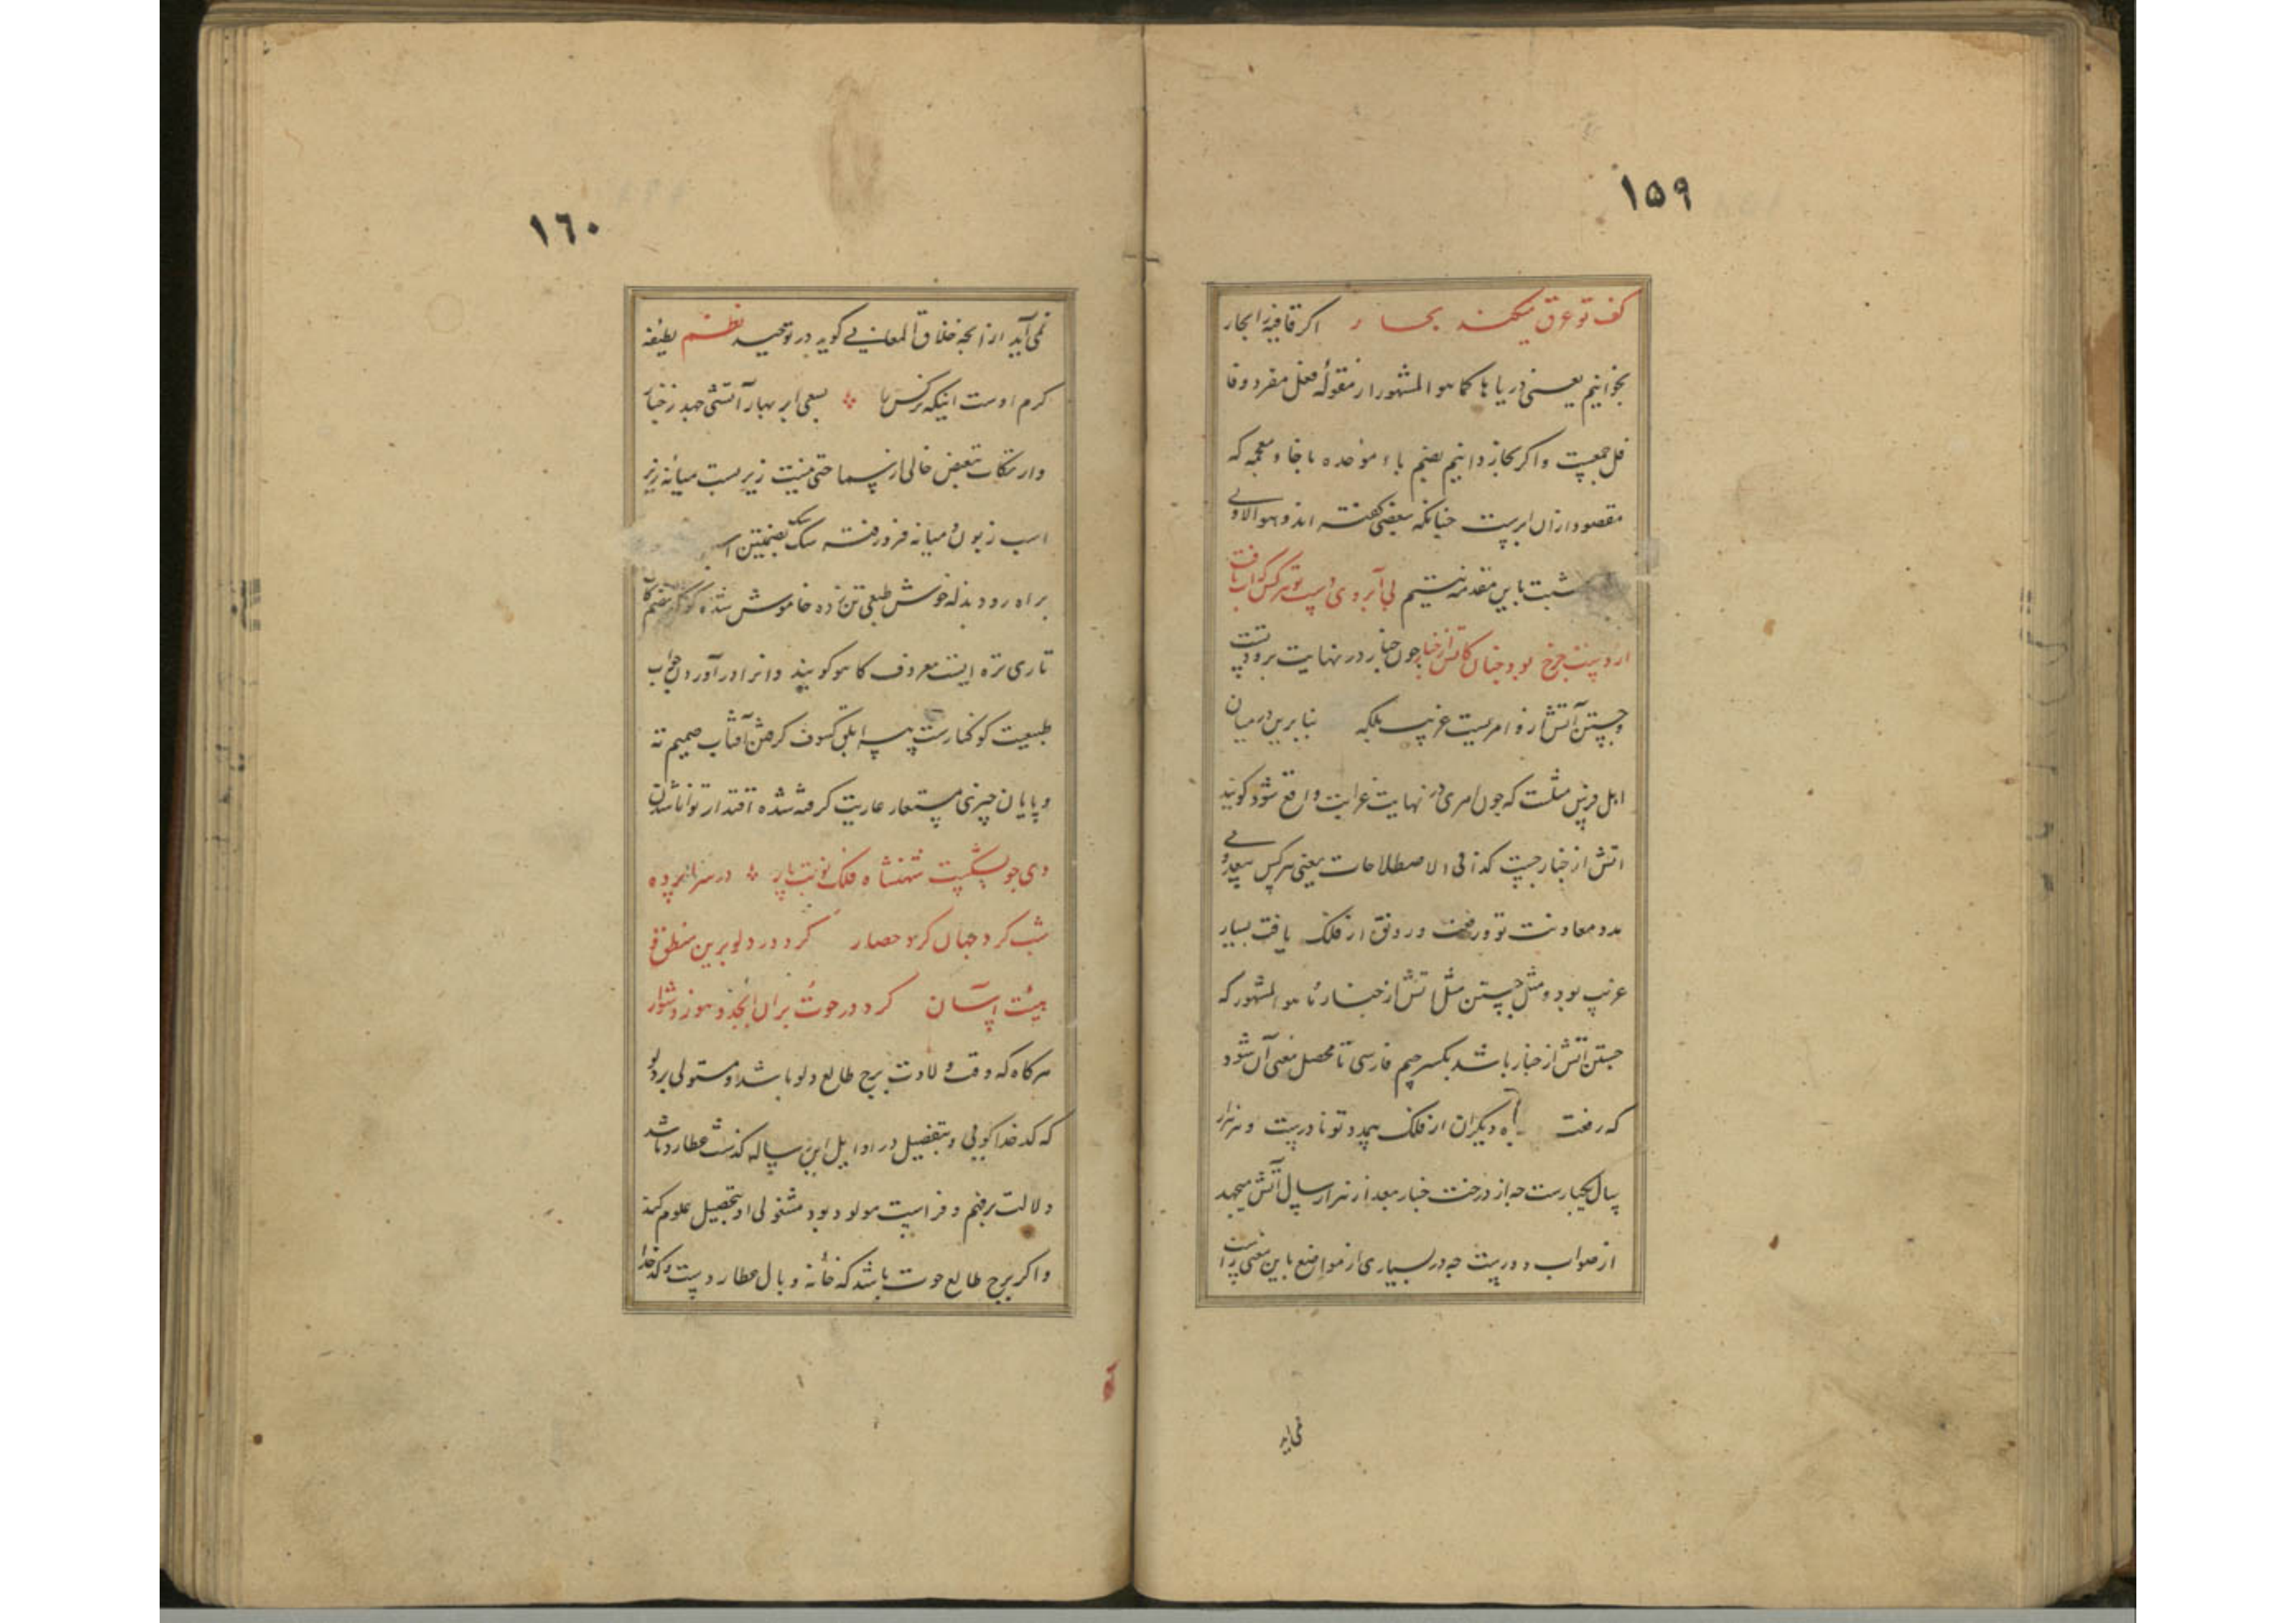 ۱۵۹
کف تو عرق میکند بحار اگر قافیه را بحار
بخوانیم یعنی دریاها کما هو المشهور از مقوله فعل مفرد و قا
فل جمعیست و اگر بخار دانیم بضم باء موحده با خاء معجمه که
مقصود از آن ابریست چنانکه بعضی گفته اند و هو الاولی
باین مقدمه نیستیم بی آبروی دست تو هر کس که آب یافت
از دست چرخ بود چنان کاتش از چنار چون چنار در نهایت برودتست
و جستن آتش ازو امریست غریب بلکه بنابرین در میان
اهل فرس مثلست که چون امری در نهایت غرابت واقع شود گویند
آتش از چنار جست کذا فی الاصطلاحات یعنی هر کس بیمدد
مدد معاونت تو رفعت و رونق از فلک یافت بسیار
غریب بود و مثل جستن مثل آتش از چنار کما هو المشهور که
جستن آتش از چنار باشد بکسر جیم فارسی تا محصل معنی آن شود
که رفعت دیگران از فلک بیمدد تو نادرست و هر هزار
سال یکبارست چه از درخت چنار بعد از هزار سال آتش میجهد
از صواب دورست چه در بسیاری از مواضع باین معنی راست
نمی آید
۱٦۰
نمی آید از انجه خلاق المعانی گوید در توحید نظم لطیفه
کرم اوست اینکه نرگس را بسعی ابر بهار آتشی جهد ز چنار
وارتکاب بعض خالی از حتی نیست زیر میانه زیر
اسب زبون و میانه فرو رفته سگ بضمتین
براه رود بذله خوش طبعی تن زده خاموش شده کوک بضم کاف
تازی تره ایست معروف کاهو گویند و انرا در آورد خواب
طبیعت کوکنارست پیسه ابلق کسوف گرفتن آفتاب صمیم ته
و پایان چیزی مستعار عاریت گرفته شده اقتدار توانا شدن
دی چو بشکست شهنشاه فلک نوبت بار در سراپرده
شب کرد جهان کرد حصار کرد در دلو برین منطق
هیئت آسان کرد در حوت بر آن ابجد و هوز دشوار
هر گاه که وقت ولادت برج طالع دلو باشد و مستولی بر دلو
که کدخدا گویی و بتفصیل در اوایل این رساله گذشت عطارد باشد
دلالت بر فهم و فراست مولود بود مشغولی او بتحصیل علوم کند
و اگر برج طالع حوت باشد که خانه وبال عطاردست و کدخدا